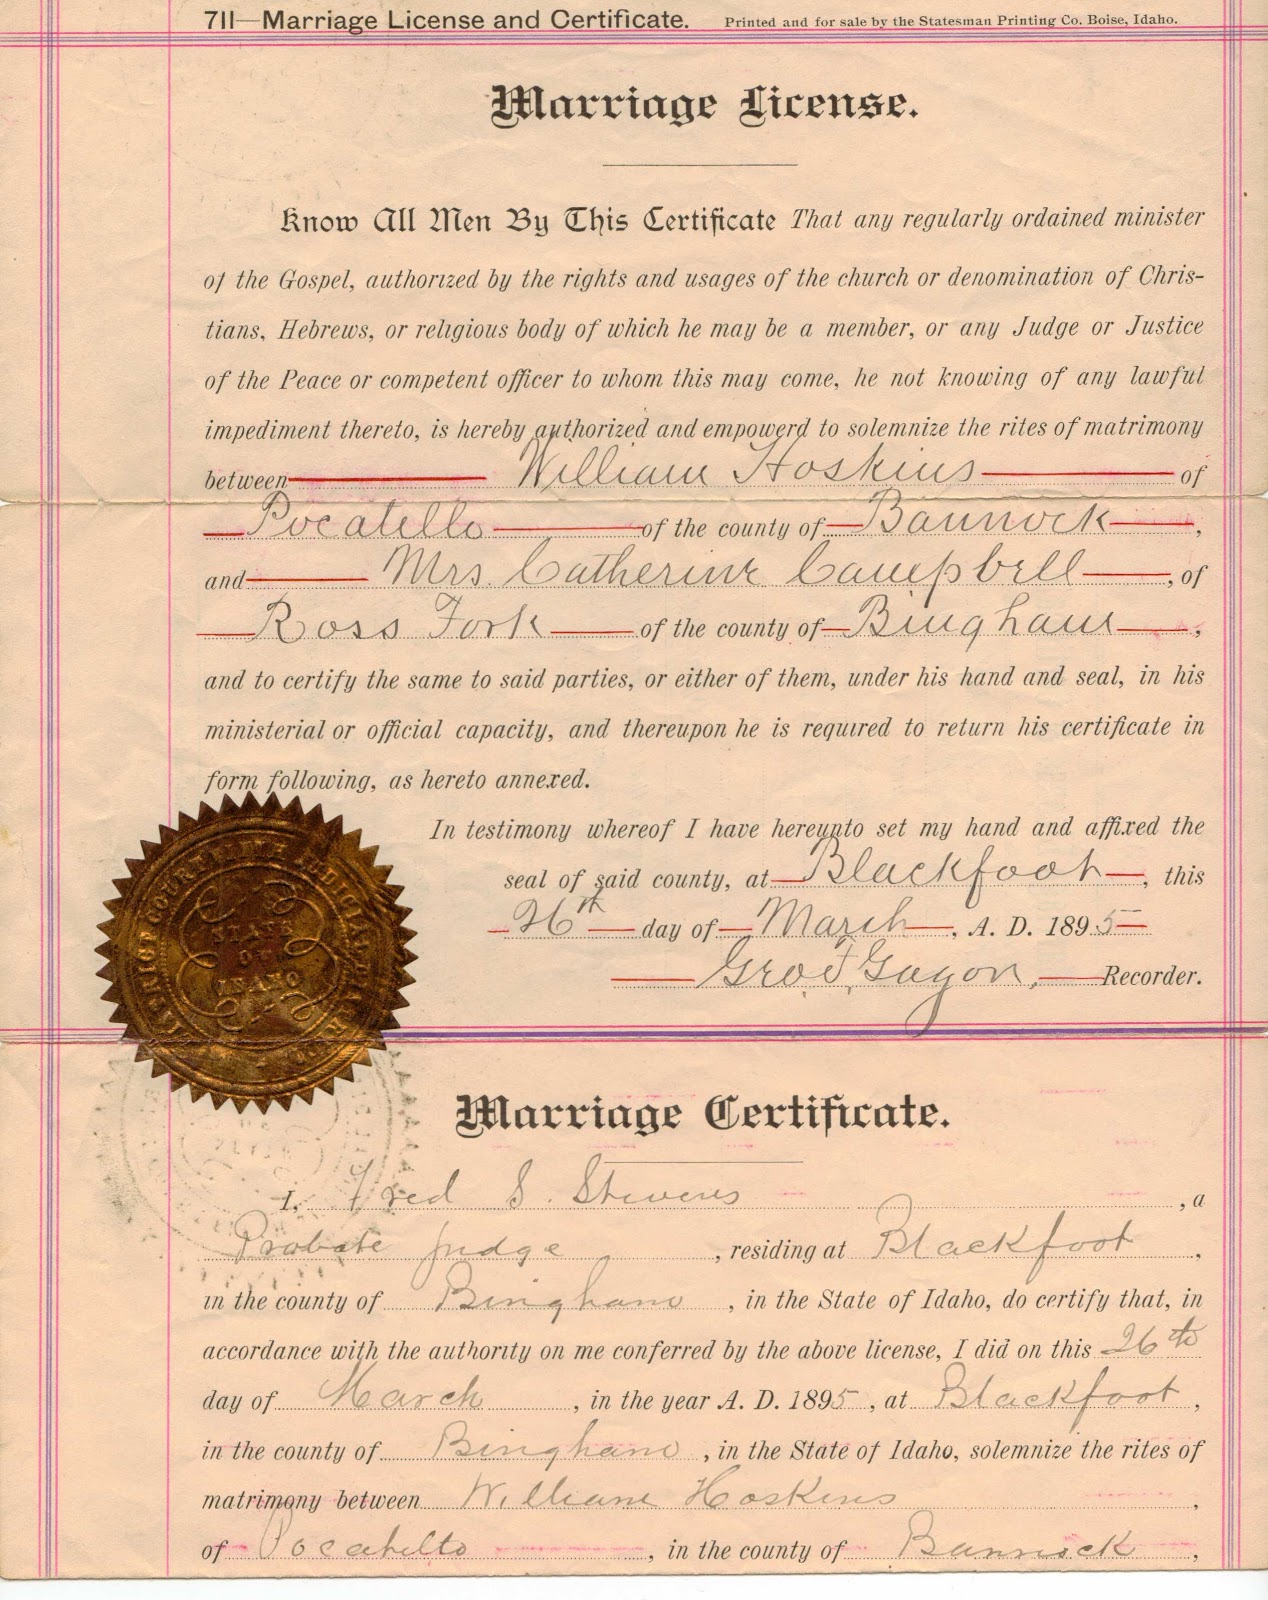 711—Marriage License and Certificate. Printed and for sale by the Statesman Printing Co. Boise, Idaho.
Marriage License.
Know All Men By This Certificate That any regularly ordained minister
of the Gospel, authorized by the rights and usages of the church or denomination of Chris-
tians, Hebrews, or religious body of which he may be a member, or any Judge or Justice
of the Peace or competent officer to whom this may come, he not knowing of any lawful
impediment thereto, is hereby authorized and empowerd to solemnize the rites of matrimony
between William Hoskins of
Pocatello of the county of Bannock,
and Mrs. Catherine Campbell, of
Ross Fork of the county of Bingham,
and to certify the same to said parties, or either of them, under his hand and seal, in his
ministerial or official capacity, and thereupon he is required to return his certificate in
form following, as hereto annexed.
In testimony whereof I have hereunto set my hand and affixed the
seal of said county, at Blackfoot, this
26th day of March, A. D. 1895
Geo F. Gagon, Recorder.
STATE
OF
IDAHO
Marriage Certificate.
I, Fred S. Stevens, a
Probate Judge, residing at Blackfoot,
in the county of Bingham, in the State of Idaho, do certify that, in
accordance with the authority on me conferred by the above license, I did on this 26th
day of March, in the year A. D. 1895, at Blackfoot,
in the county of Bingham, in the State of Idaho, solemnize the rites of
matrimony between William Hoskins,
of Pocatello, in the county of Bannock,